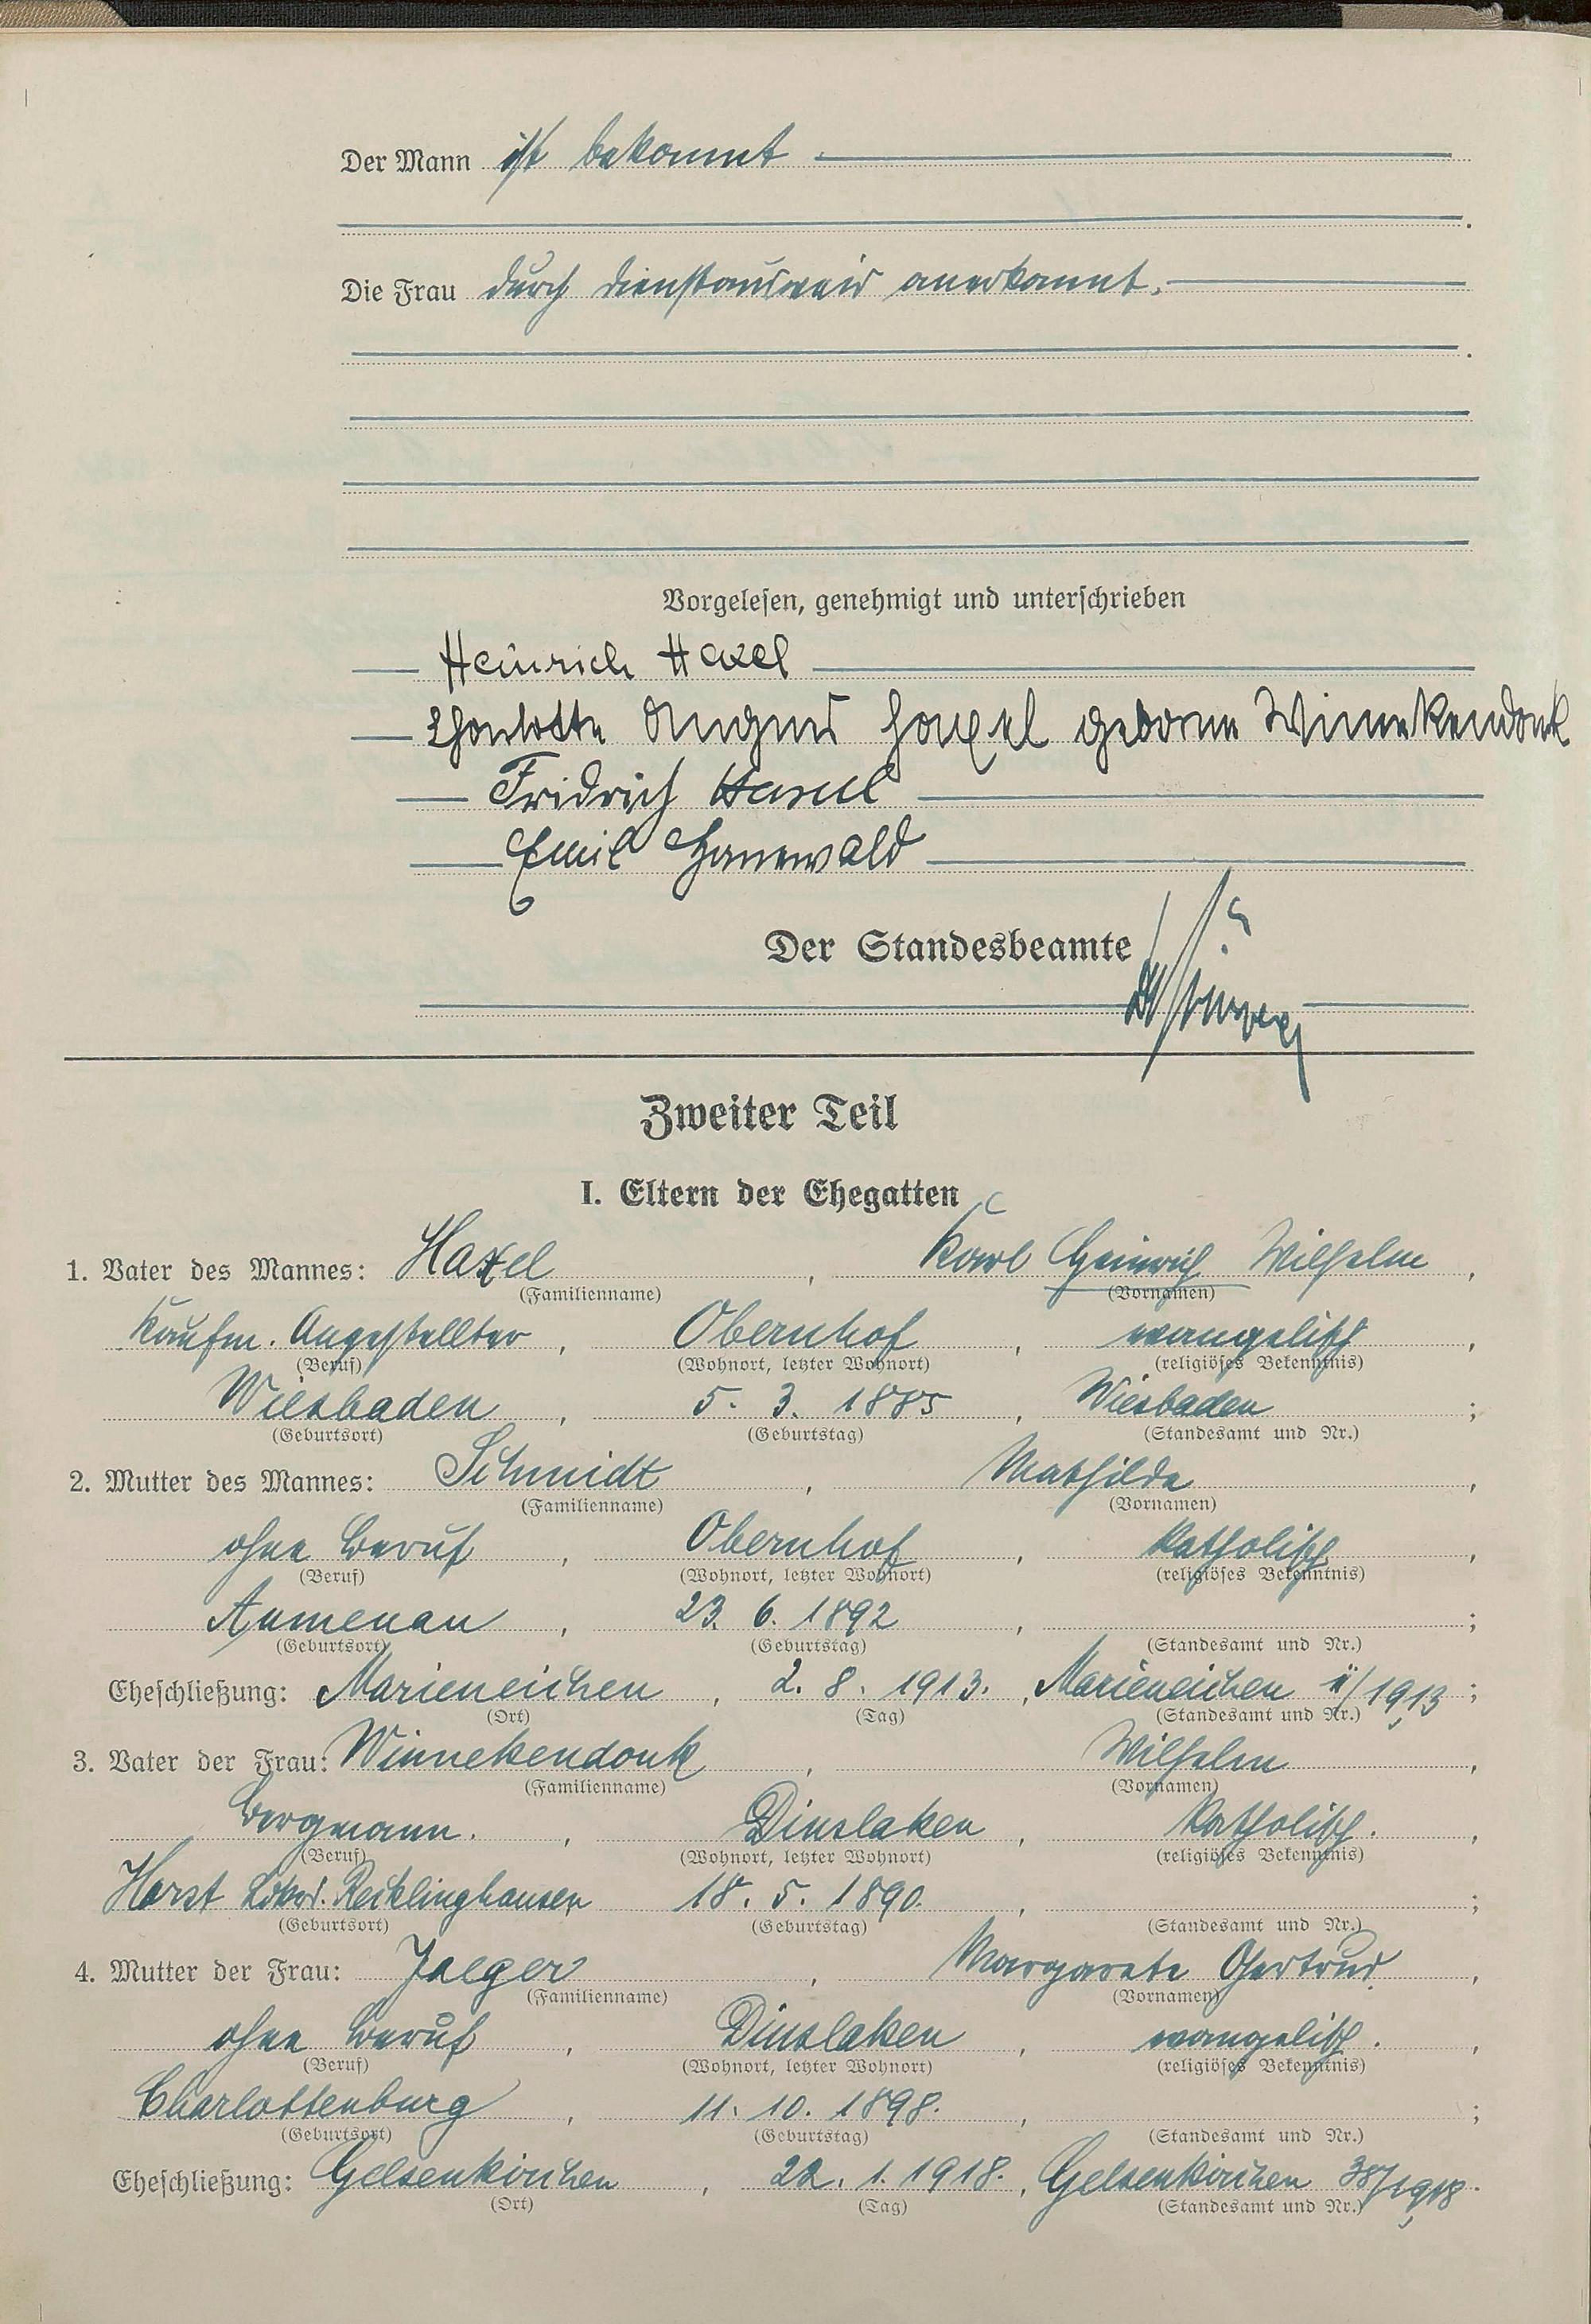 Der Mann ist bekannt.
Die Frau durch Dienstausweis anerkannt.
Vorgelesen, genehmigt und unterschrieben
Heinrich Haxel
Charlotte Agnes Haxel geborene Winnekendonk
Fridrich Haxel
Emil Hanewald
Der Standesbeamte
Zweiter Teil
I. Eltern der Ehegatten
1. Vater des Mannes: Haxel, Karl Heinrich Wilhelm,
(Familienname) (Vornamen)
Kaufm. Angestellter, Obernhof, evangelisch,
(Beruf) (Wohnort, letzter Wohnort) (religiöses Bekenntnis)
Wiesbaden, 5. 3. 1885, Wiesbaden;
(Geburtsort) (Geburtstag) (Standesamt und Nr.)
2. Mutter des Mannes: Schmidt, Mathilde,
(Familienname) (Vornamen)
ohne Beruf, Obernhof, katholisch,
(Beruf) (Wohnort, letzter Wohnort) (religiöses Bekenntnis)
Aumenau, 23. 6. 1892, ;
(Geburtsort) (Geburtstag) (Standesamt und Nr.)
Eheschließung: Marieneichen, 2. 8. 1913., Marieneichen /1913;
(Ort) (Tag) (Standesamt und Nr.)
3. Vater der Frau: Winnekendonk, Wilhelm,
(Familienname) (Vornamen)
Bergmann., Dinslaken, katholisch.,
(Beruf) (Wohnort, letzter Wohnort) (religiöses Bekenntnis)
Horst Recklinghausen, 18. 5. 1890., ;
(Geburtsort) (Geburtstag) (Standesamt und Nr.)
4. Mutter der Frau: Jaeger, Margarete Gertrud,
(Familienname) (Vornamen)
ohne Beruf, Dinslaken, evangelisch.,
(Beruf) (Wohnort, letzter Wohnort) (religiöses Bekenntnis)
Charlottenburg, 11. 10. 1898., ;
(Geburtsort) (Geburtstag) (Standesamt und Nr.)
Eheschließung: Gelsenkirchen, 22. 1. 1918., Gelsenkirchen 38/1918.
(Ort) (Tag) (Standesamt und Nr.)